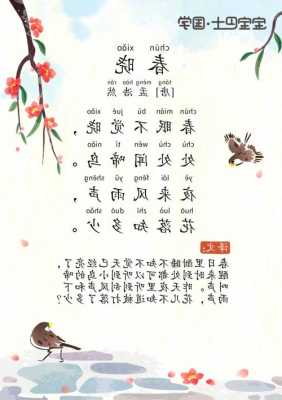 宝宝巴士·国学
chūn xiǎo
春 晓
táng mèng hào rán
[唐] 孟 浩 然
chūn mián bù jué xiǎo
春 眠 不 觉 晓，
chù chù wén tí niǎo
处 处 闻 啼 鸟。
yè lái fēng yǔ shēng
夜 来 风 雨 声，
huā luò zhī duō shǎo
花 落 知 多 少。
译文:
春日里酣睡不知不觉天已经亮了，
醒来时到处都可以听到小鸟的啼
叫声。昨天夜里听到刮风声和下
雨声，花儿不知道被打落了多少？